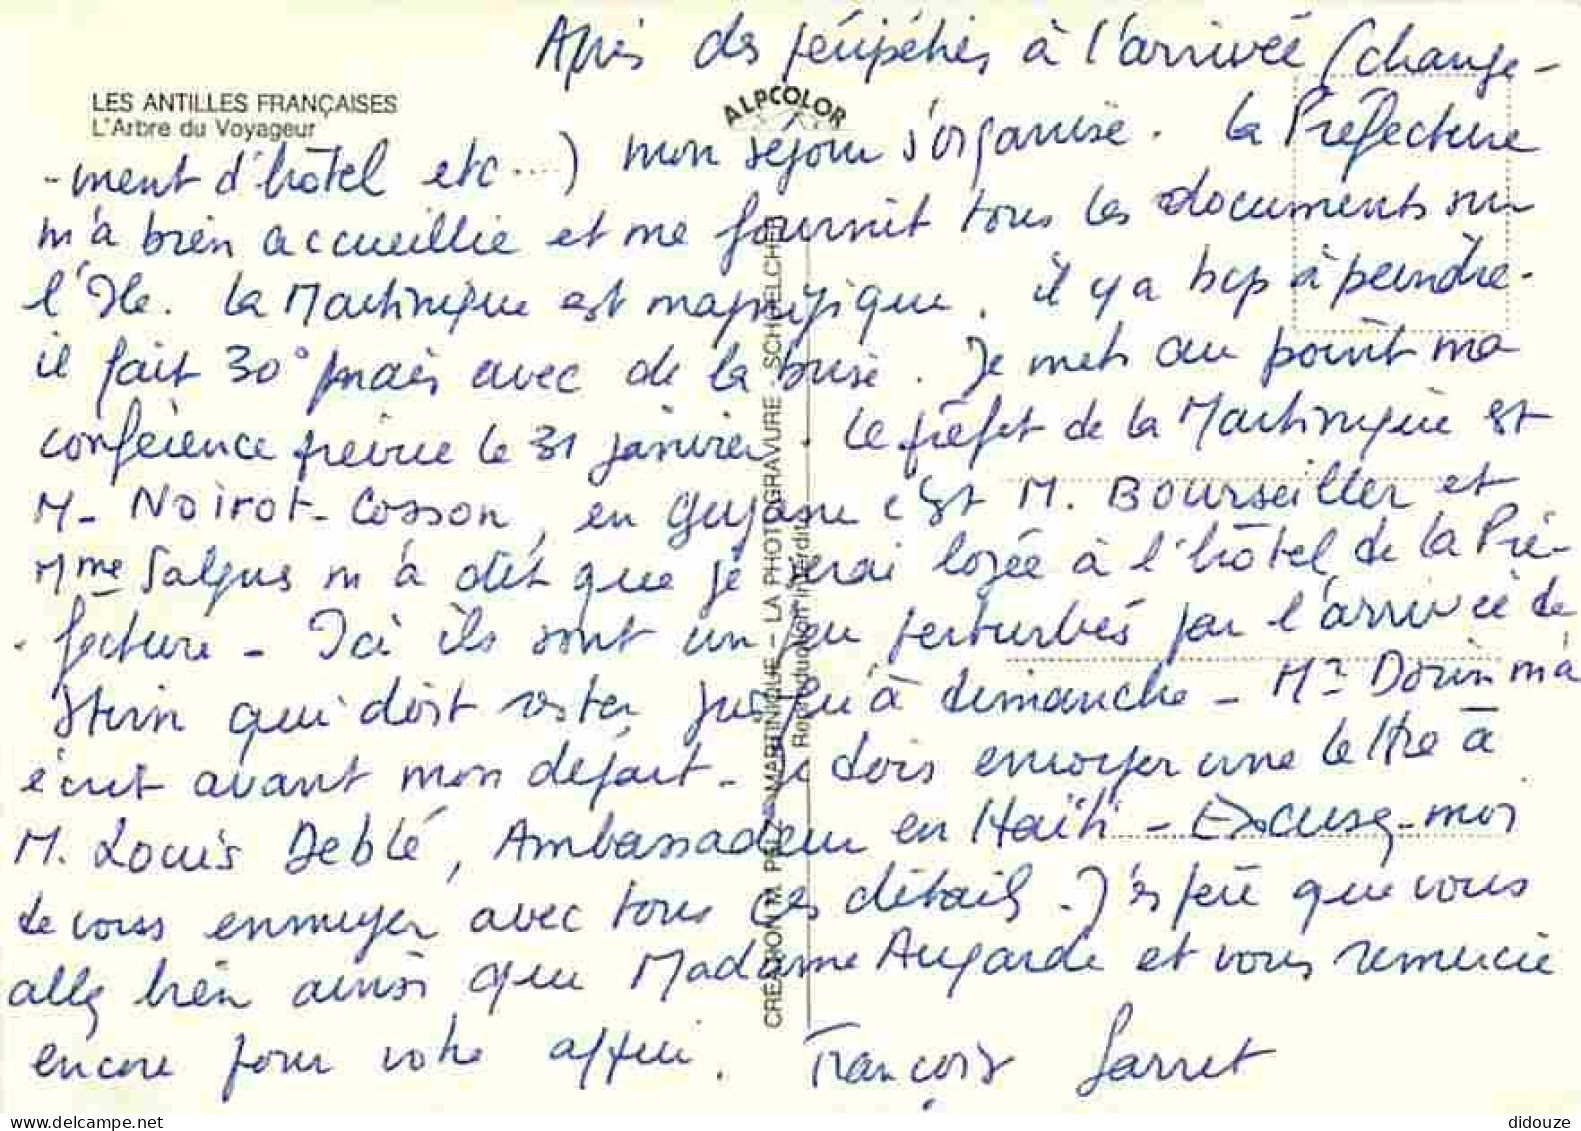 Après des péripéties à l'arrivée (change-
LES ANTILLES FRANÇAISES
L'Arbre du Voyageur
ALPCOLOR
-ment d'hôtel etc...) mon séjour s'organise. La Préfecture
m'a bien accueillie et me fournit tous les documents sur
l'Ile. La Martinique est magnifique. il y a bcp à peindre.
il fait 30° mais avec de la brise. Je mets au point ma
conférence prévue le 31 janvier. Le préfet de la Martinique est
M- Noirot-Cosson, en Guyane c'est M. Bourseiller et
Mme m'a dit que je serai logée à l'hôtel de la Pré-
-fecture - Ici ils sont un peu perturbés par l'arrivée de
Stirn qui doit rester jusqu'à dimanche - Mr Dorin m'a
écrit avant mon départ - Je dois envoyer une lettre à
M. Louis Deblé, Ambassadeur en Haïti - Excusez-moi
de vous ennuyer avec tous ces détails. J'espère que vous
allez bien ainsi que Madame Augarde et vous remercie
encore pour votre appui. François Garret
CREATION M. PELZ - MARTINIQUE - LA PHOTOGRAVURE - SCHOELCHER
Reproduction interdite
didouze